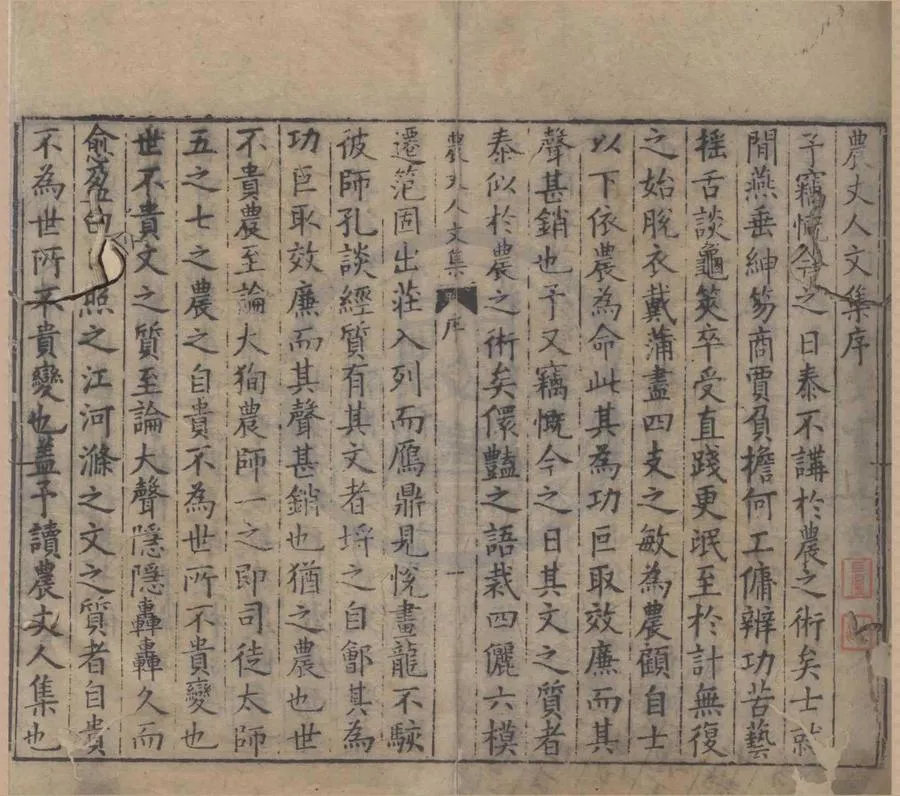 農丈人文集序
予竊慨今之日泰不講於農之術矣士就
閒燕垂紳笏商賈負擔何工傭辨功苦藝
揺舌談龜筴卒受直踐更泯至於計無復
之始脫衣戴蒲盡四支之敏為農顧自士
以下依農為命此其為功巨取效廉而其
聲甚銷也予又竊慨今之日其文之質者
泰似於農之術矣儇豔之語裁四儷六模
農丈人文集 序 一
遷范固出莊入列而鴈鼎見悅畫龍不駭
彼師孔談經質有其文者埓之自鄶其為
功巨取效廉而其聲甚銷也猶之農也世
不貴農至論大狥農師一之即司徒太師
五之七之農之自貴不為世所不貴變也
世不貴文之質至論大聲隱隱轟轟久而
愈 照之江河滌之文之質者自貴
不為世所不貴變也蓋予讀農丈人集也